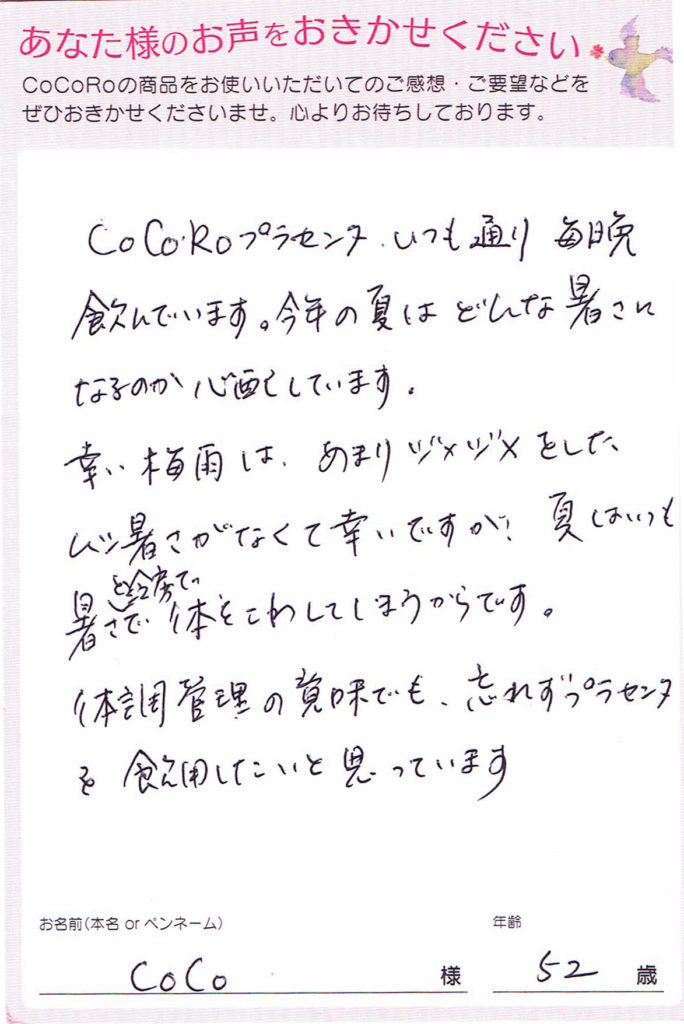 あなた様のお声をおきかせください
CoCoRoの商品をお使いいただいてのご感想・ご要望などを
ぜひおきかせくださいませ。心よりお待ちしております。
CoCoRoプラセンタ、いつも通り 毎日晩
飲んでいます。今年の夏は どんな暑さに
なるのか 心配しています。
幸い梅雨は、あまりジメジメをした
ムシ暑さがなくて幸いですが、夏はいつも
と冷房で
暑さで 体をこわしてしまうからです。
体調管理の意味でも、忘れずプラセンタ
を 飲用したいと思っています
お名前(本名 or ペンネーム)
年齢
CoCo 様
52 歳